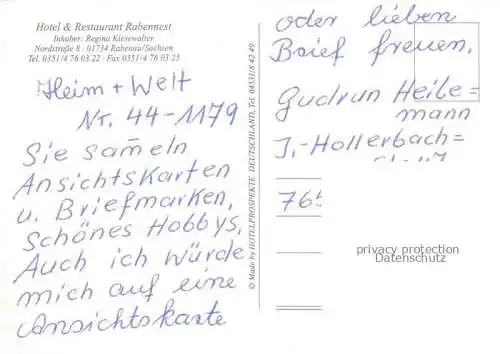 Hotel & Restaurant Rabennest
Inhaber: Regina Kiesewalter
Nordstraße 8 · 01734 Rabenau/Sachsen
Tel. 0351/4 76 03 22 · Fax 0351/4 76 03 25
Heim + Welt
Nr. 44-1179
Sie sammeln
Ansichtskarten
u. Briefmarken,
schönes Hobbys,
Auch ich würde
mich auf eine
Ansichtskarte
© Made by HOTELPROSPEKTE DEUTSCHLAND, Tel. 04531/8 42 49
oder lieben
Brief freuen.
Gudrun Heile=
mann
J.-Hollerbach=
765
privacy protection
Datenschutz